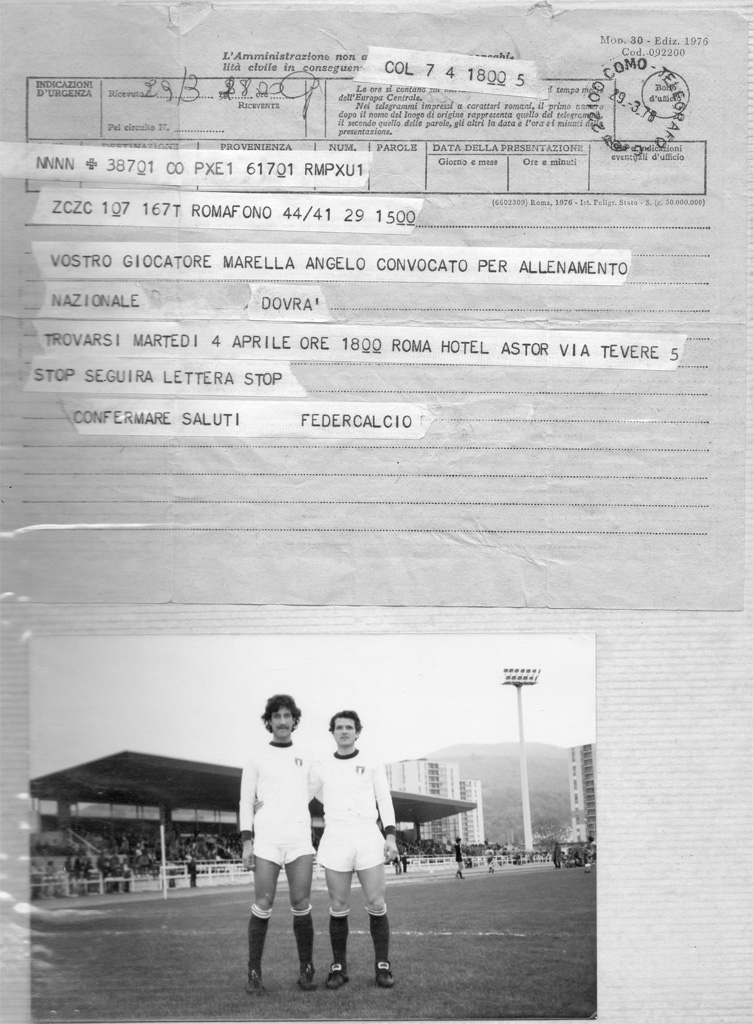 Mod. 30 - Ediz. 1976
Cod. 092200
L'Amministrazione non a
lità civile in conseguen
COL 7 4 1800 5
INDICAZIONI
D'URGENZA
Ricevuto 29/3
RICEVENTE
Pel circuito N.
Le ore si contano
tempo me
dell'Europa Centrale.
Nei telegrammi impressi a caratteri romani, il primo
dopo il nome del luogo di origine rappresenta quello del telegramma,
il secondo quello delle parole, gli altri la data e l'ora e i minuti della
presentazione.
COMO - TELEGRAFO
29-3.78
Bollo
d'ufficio
DESTINAZIONE
PROVENIENZA
NUM.
PAROLE
DATA DELLA PRESENTAZIONE
Giorno e mese
Ore e minuti
indicazioni
eventuali d'ufficio
NNNN + 38701 CO PXE1 61701 RMPXU1
ZCZC 107 167T ROMAFONO 44/41 29 1500
(6602309) Roma, 1976 - Ist. Poligr. Stato - S. (c. 50.000.000)
VOSTRO GIOCATORE MARELLA ANGELO CONVOCATO PER ALLENAMENTO
NAZIONALE DOVRA'
TROVARSI MARTEDI 4 APRILE ORE 1800 ROMA HOTEL ASTOR VIA TEVERE 5
STOP SEGUIRA LETTERA STOP
CONFERMARE SALUTI FEDERCALCIO